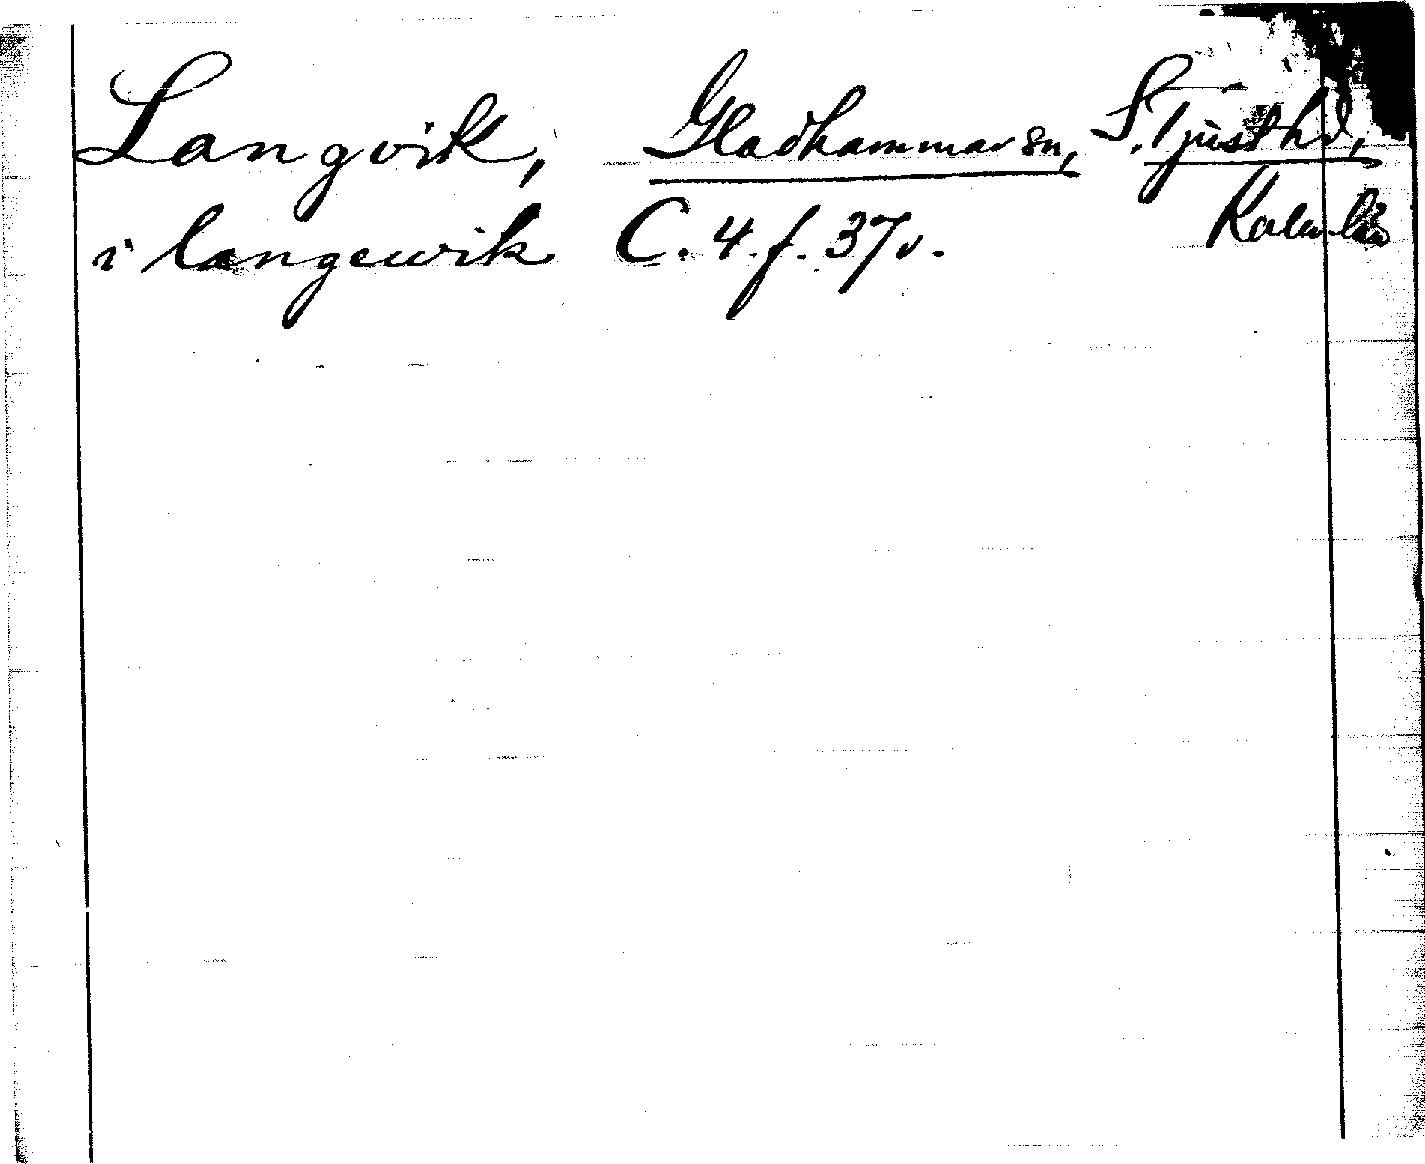 Langvik, Gladhammar sn, S. Tjust hd,
i langewik C. 4. f. 37v. Kalm. län